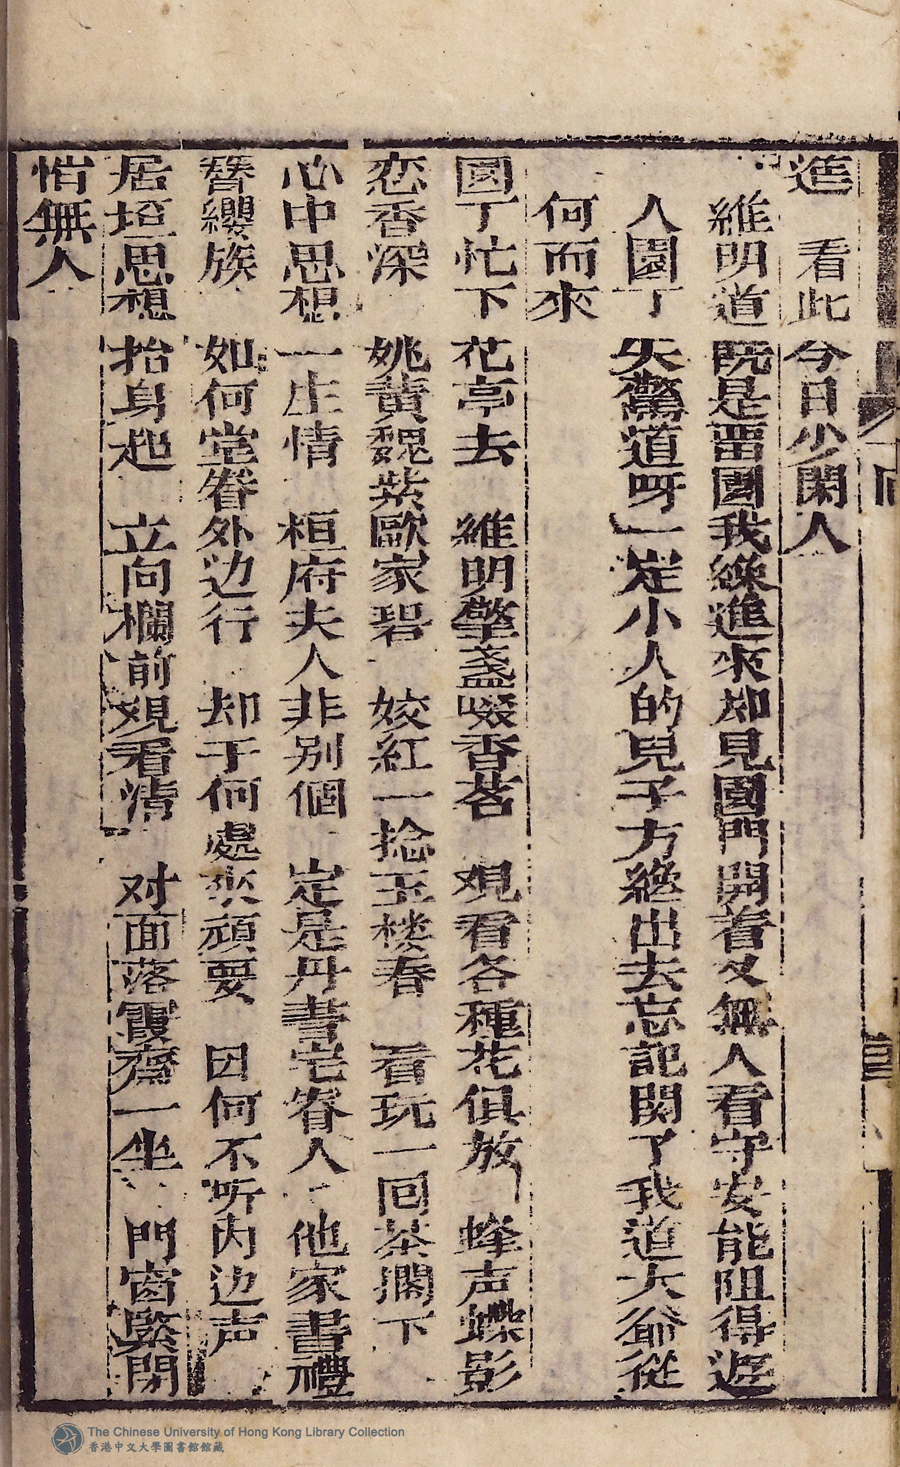 進 看此 今日少閑人
維明道 既是畱園我纔進來却見園門開着又無人看守安能阻得遊
人園丁 失驚道呀一定小人的兒子方纔出去忘記関了我道大爺從
何而來
園丁忙下 花亭去 維明擎盞啜香茗 覌看各種花俱放 蜂声蝶影
恋香深 姚黄魏紫歐家碧 姣紅一捻玉楼春 看玩一囬茶擱下
心中思想 一庄情 桓府夫人非别個 定是丹書宅眷人 他家書禮
簪纓族 如何堂眷外边行 却于何處來頑耍 因何不听内边声
居垣思想 抬身起 立向欄前覌看清 对面落霞齋一坐 門窗緊閉
悄無人
The Chinese University of Hong Kong Library Collection
香港中文大學圖書館館藏